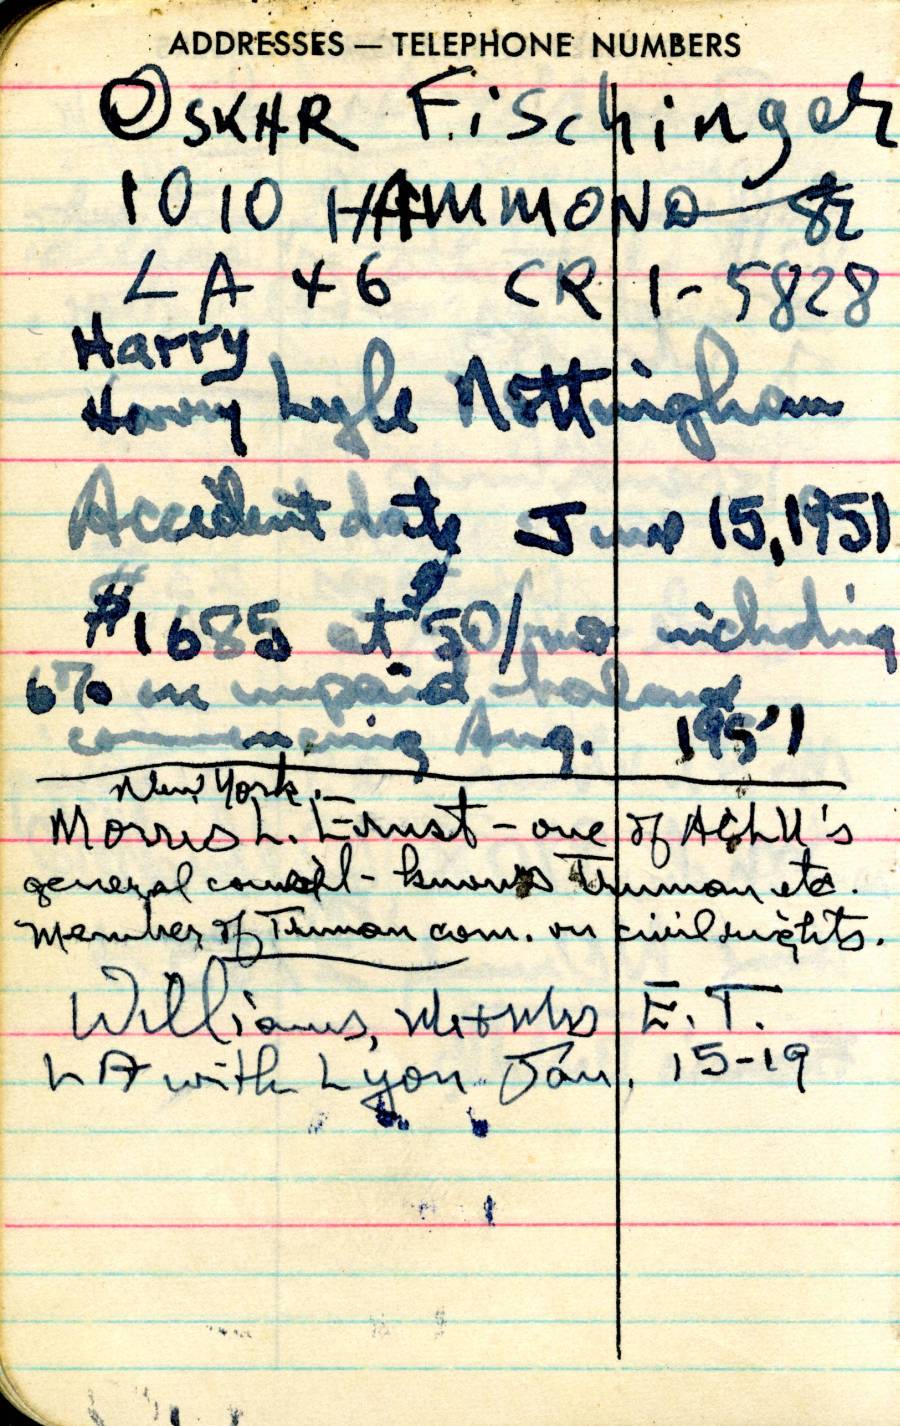 ADDRESSES — TELEPHONE NUMBERS
OSKAR Fischinger
1010 HAMMOND St
LA 46 CR 1-5828
Harry
Harry Lyle Nottingham
Accident date June 15, 1951
$1685 at $50/mo including
6% on unpaid balance
commencing Aug. 1951
New York.
Morris L. Ernst - one of ACLU's
general counsel - knows Truman etc.
Member of Truman com. on civil rights.
Williams, Mr + Mrs E.T.
LA with Lyon Jan. 15-19